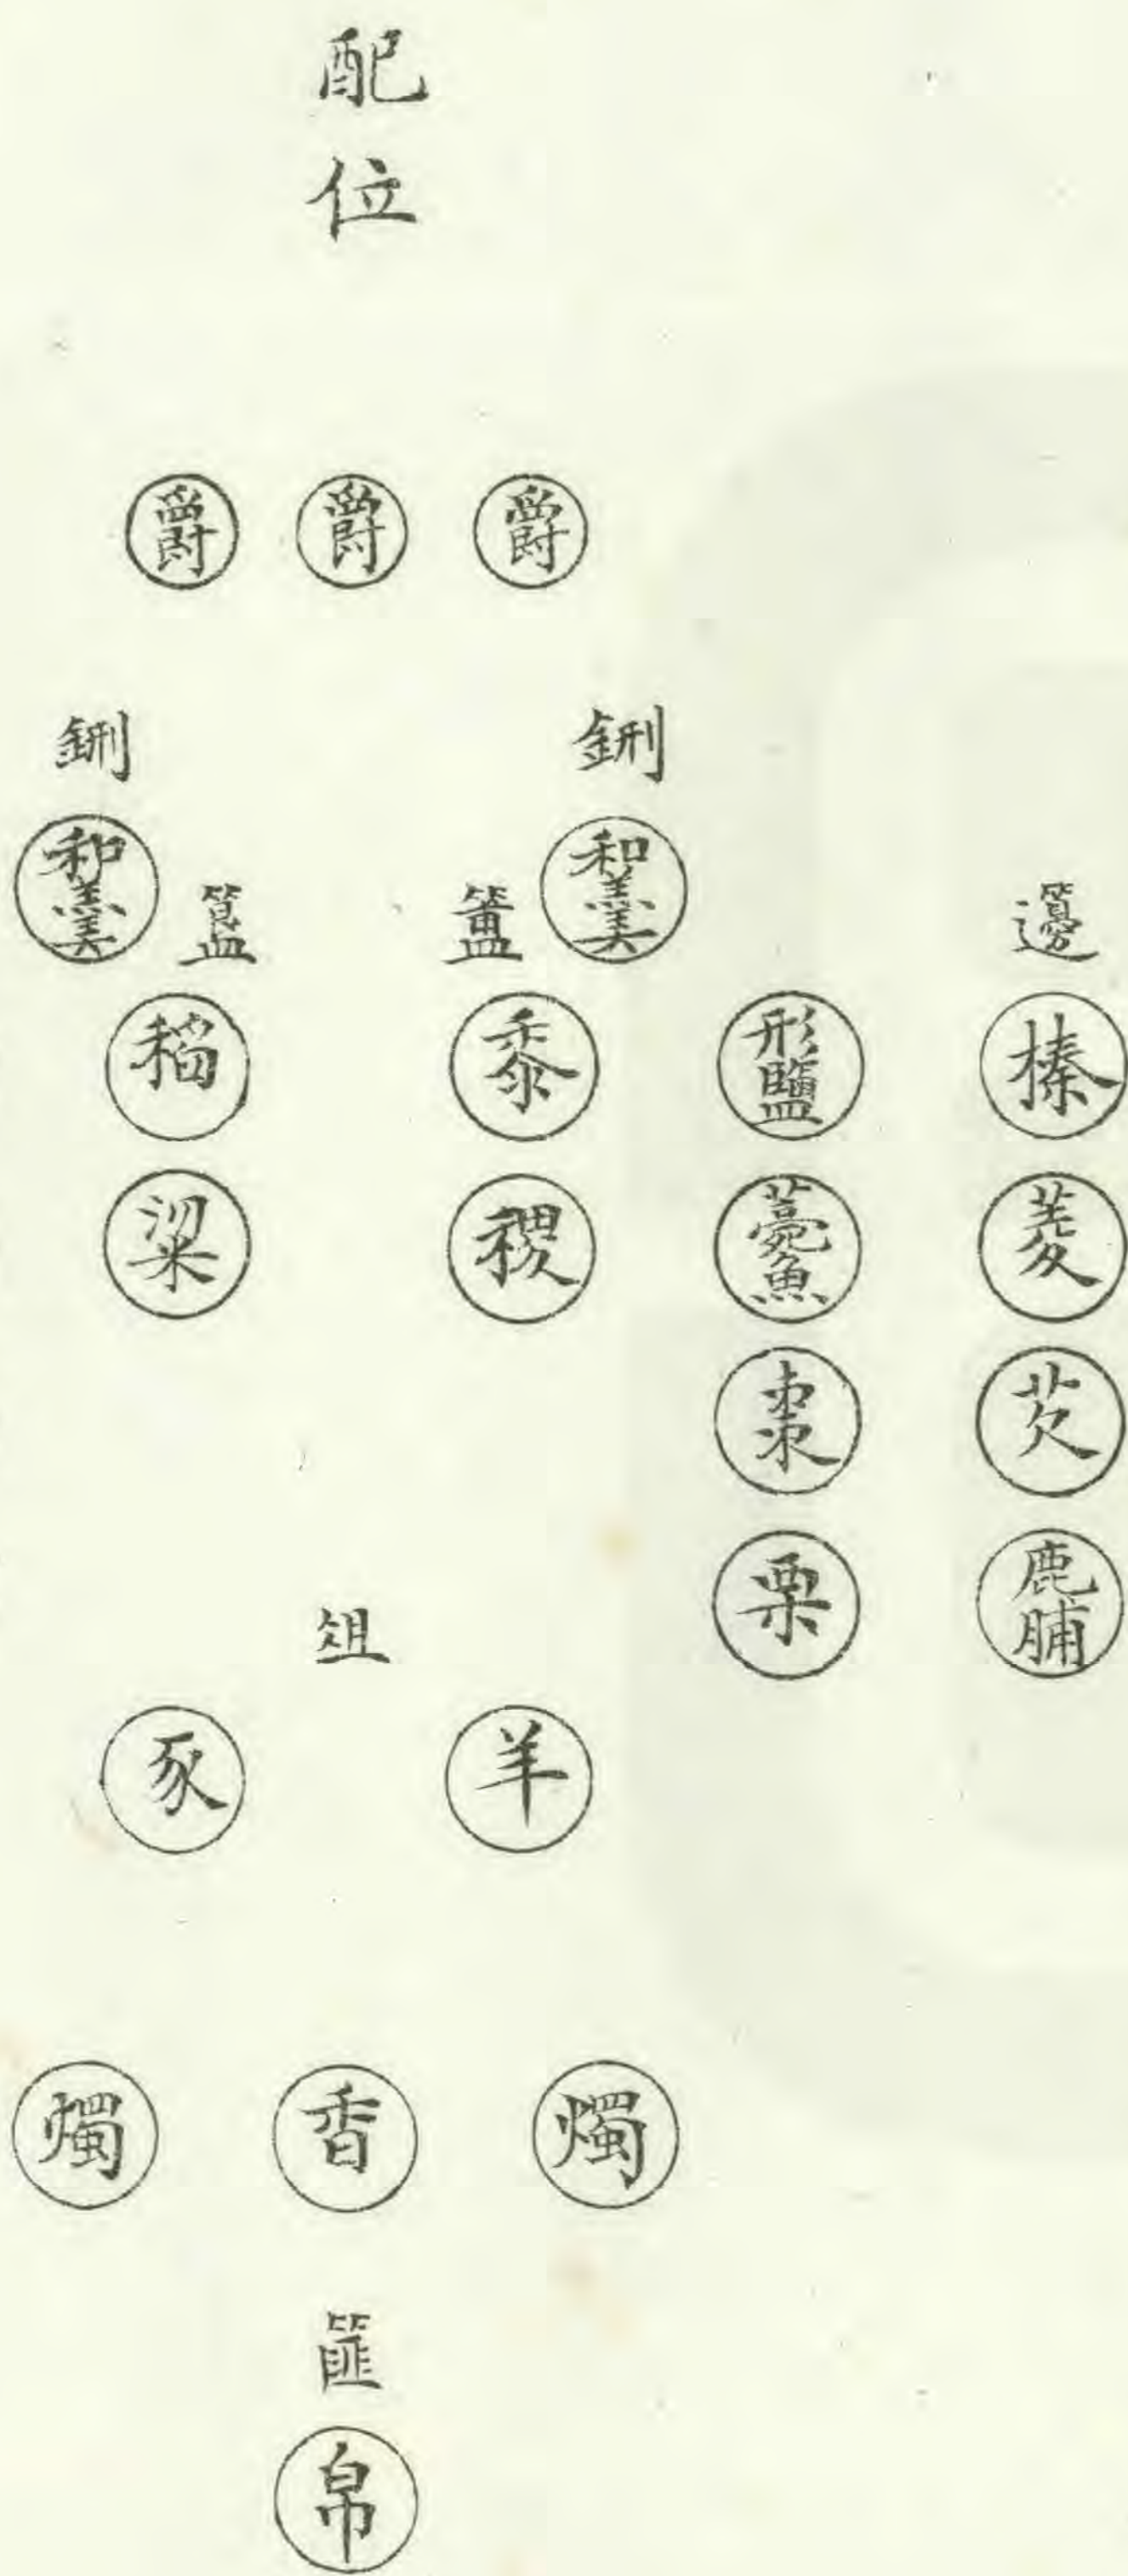 配位
爵 爵 爵
鉶 鉶
和羹 和羹
簠 簋 籩
稻 黍 形鹽 榛
粱 稷 薨魚 菱
棗 芡
栗 鹿脯
俎
豕 羊
燭 香 燭
篚
帛